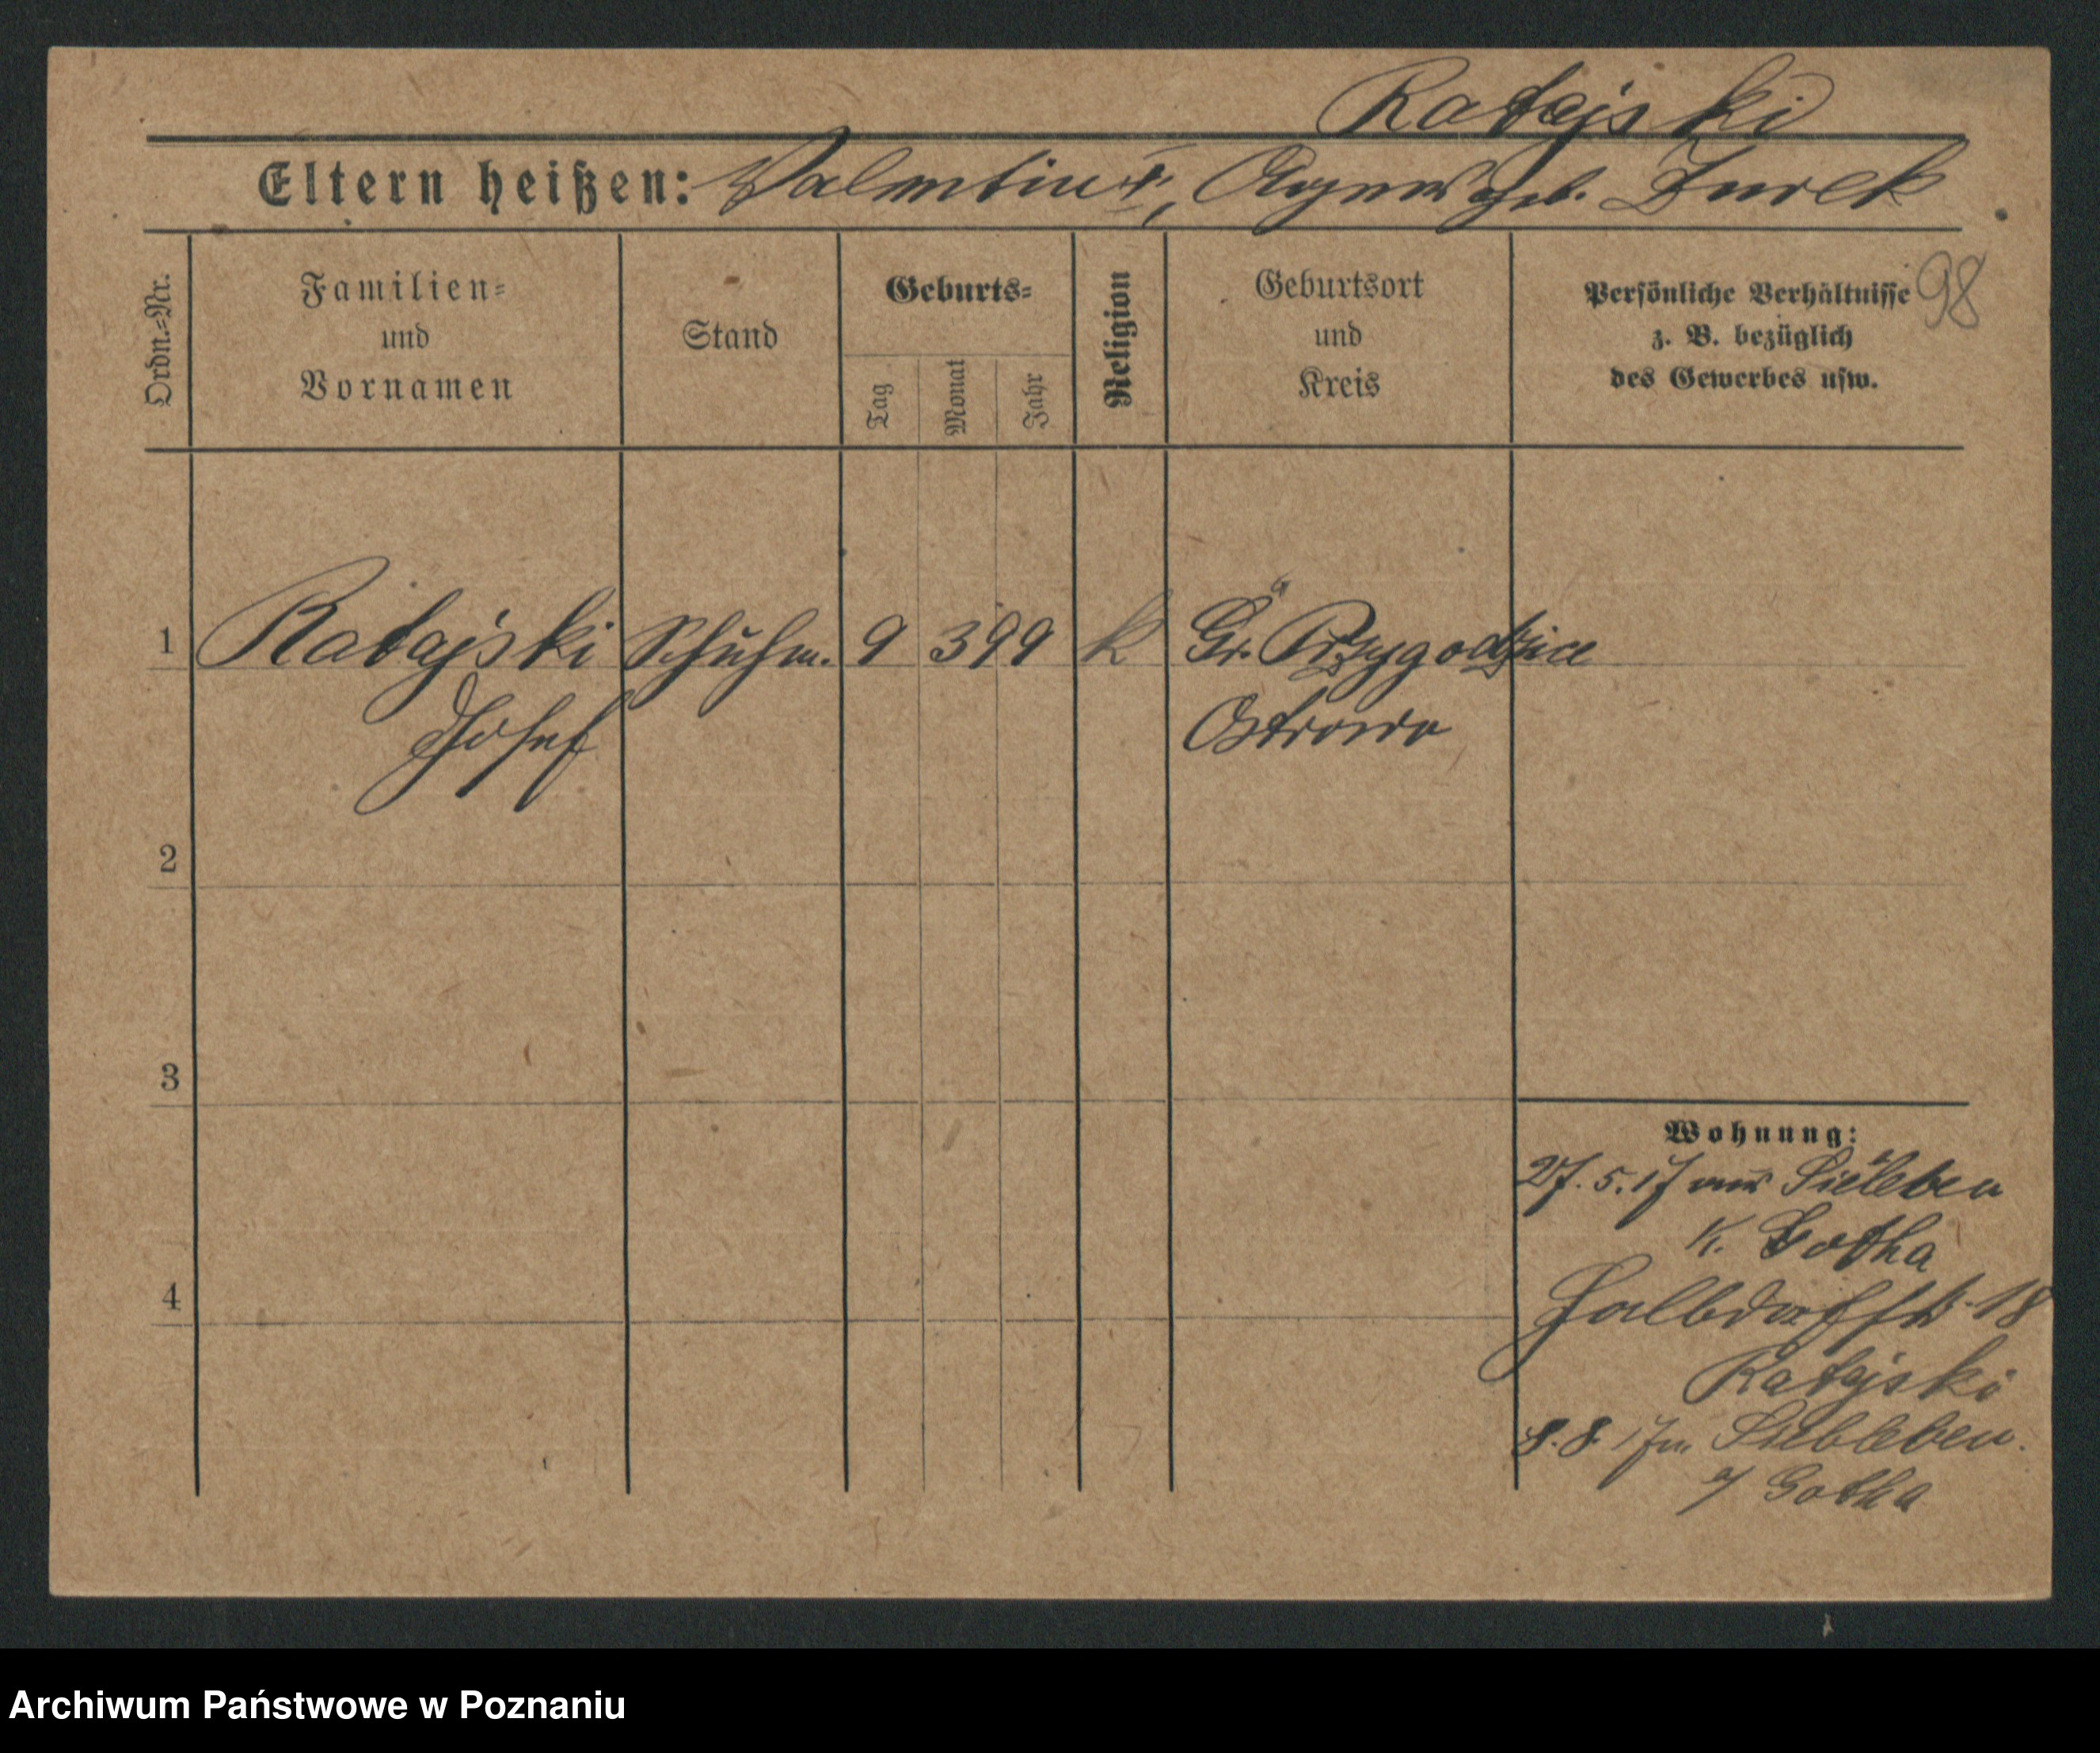 Ratajski
Eltern heißen: Valentin †, Agnes geb. Zurek
98
Ordn.=Nr.
Familien=
und
Vornamen
Stand
Geburts=
Tag
Monat
Jahr
Religion
Geburtsort
und
Kreis
Persönliche Verhältnisse
z. B. bezüglich
des Gewerbes usw.
1 Ratajski Schuhm. 9 3 99 k Gr. Przygodzice
Josef Ostrowo
2
3
4
Wohnung:
27. 5. 17 aus Sieleben
K. Gotha
Halbdorfstr. 18
Ratajski
8. 8. 17 n. Siebleben.
a/ Gotha
Archiwum Państwowe w Poznaniu